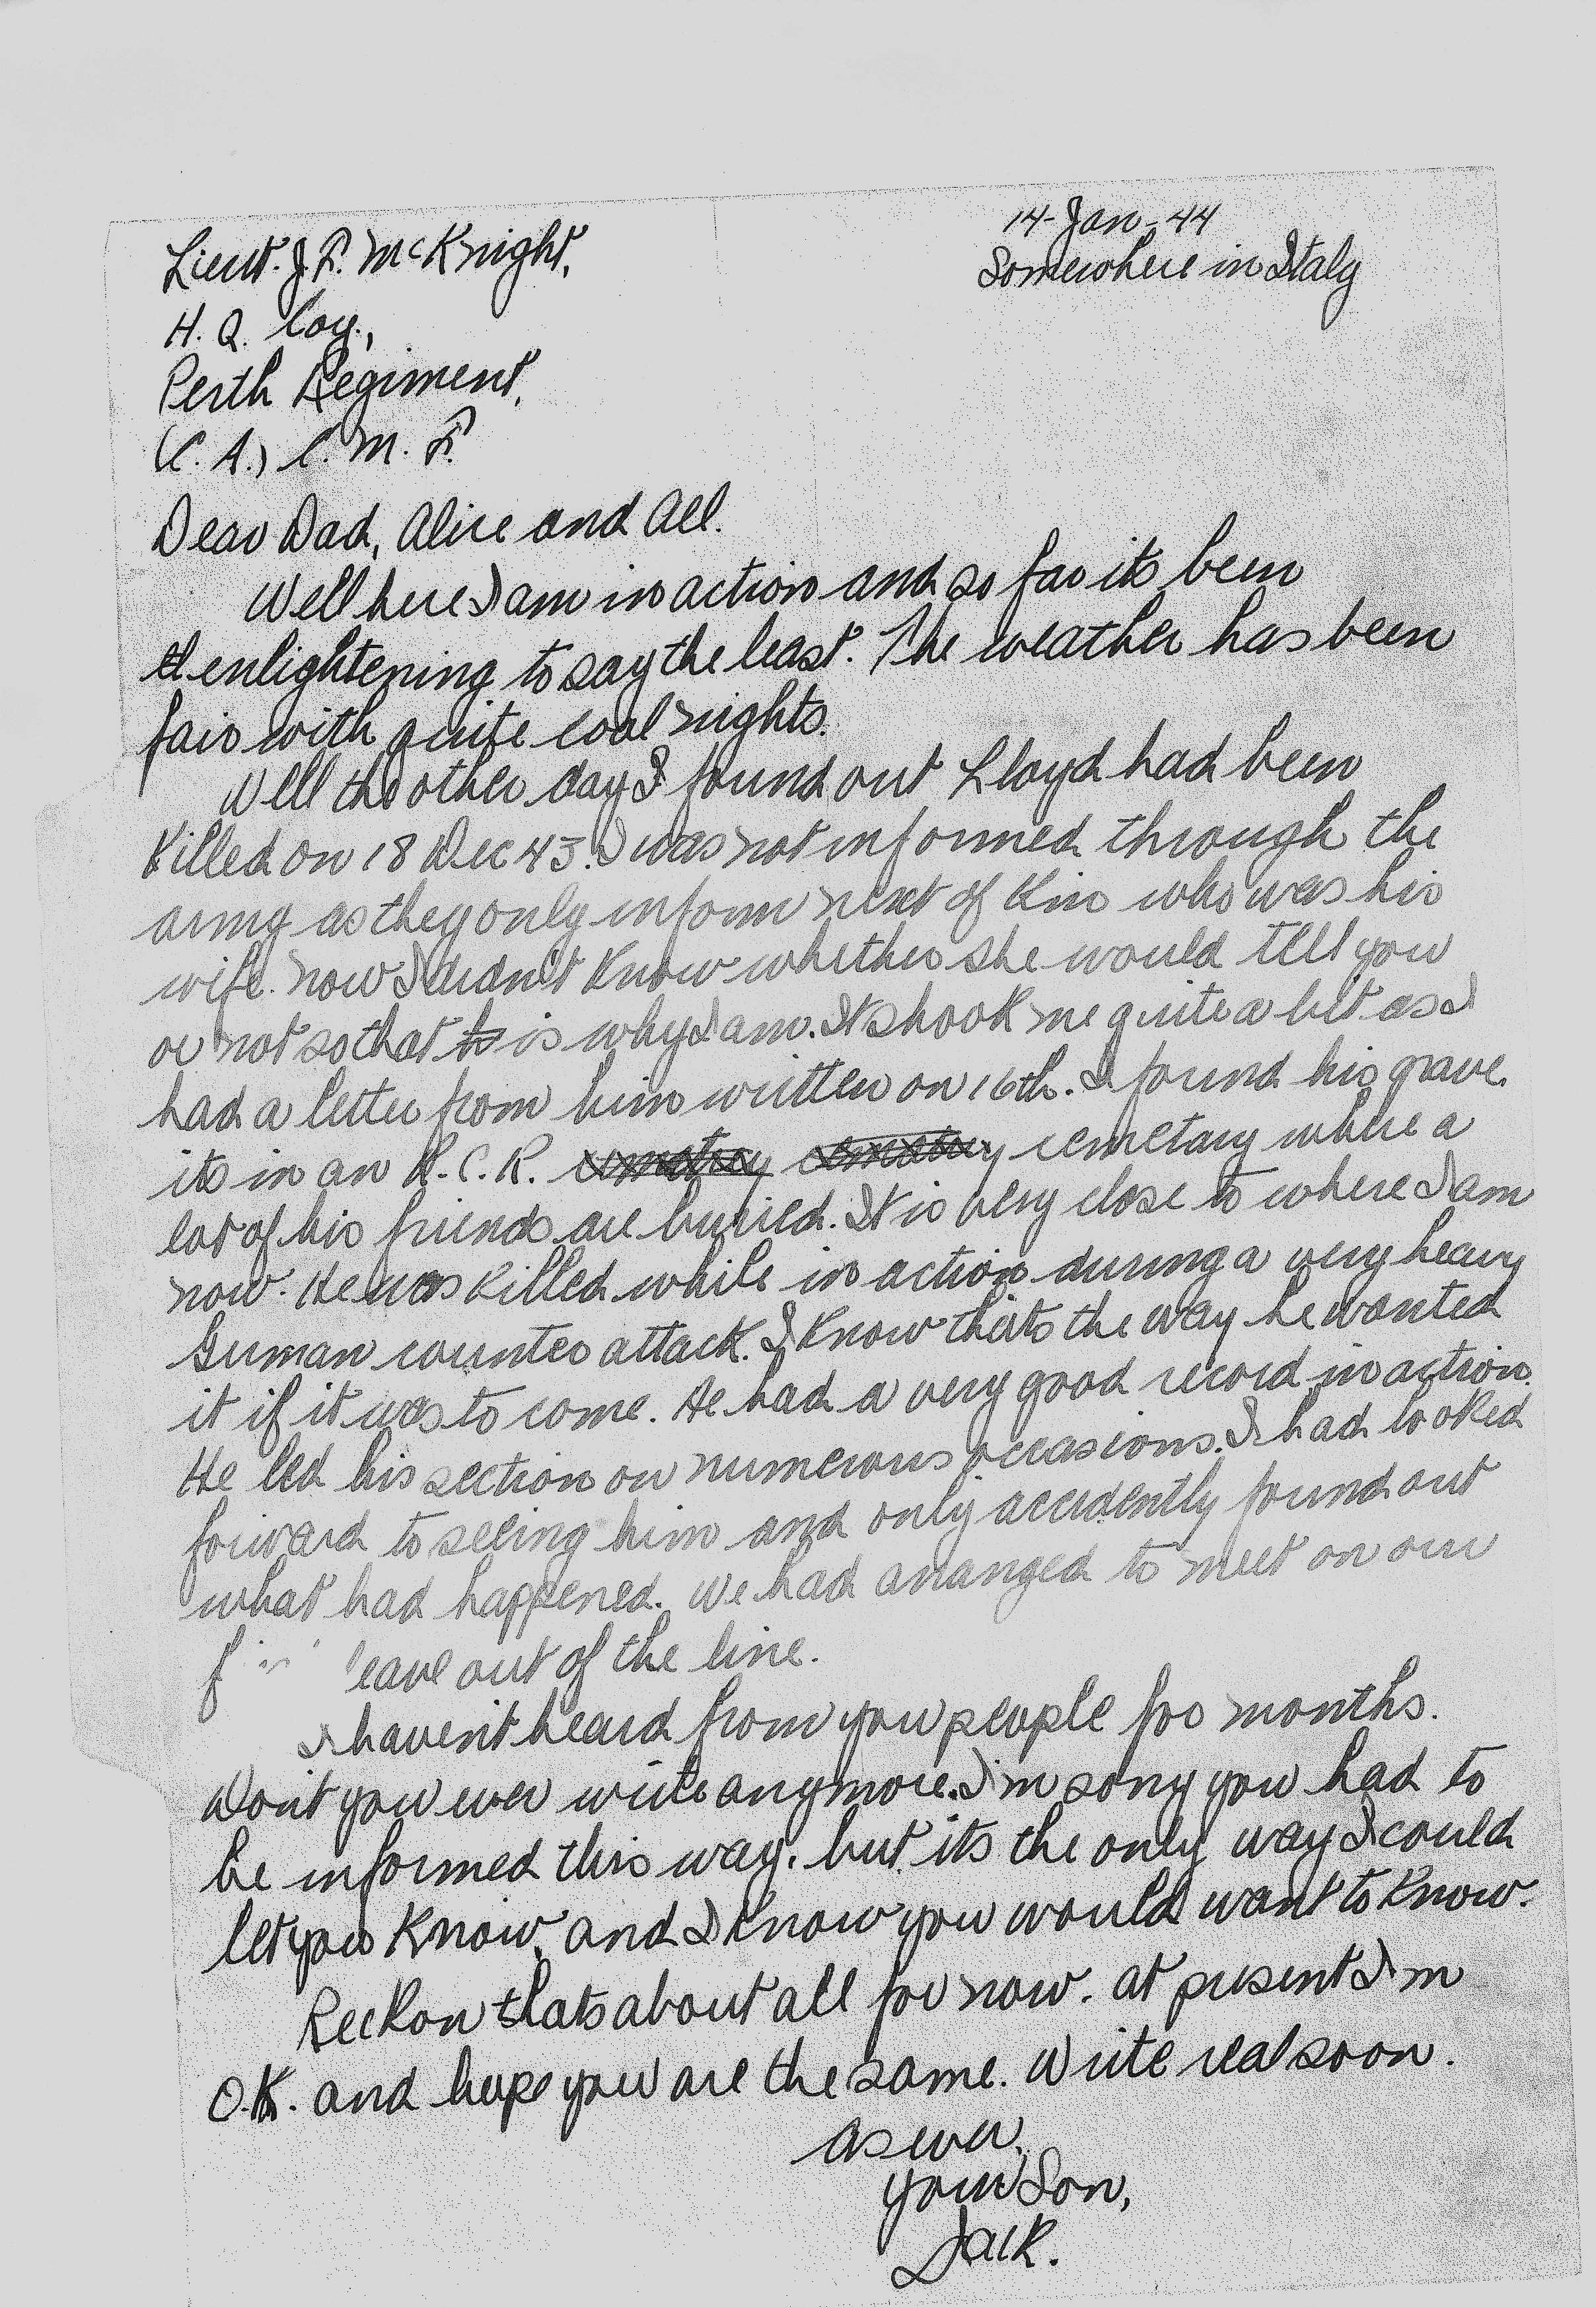 14-Jan-44
Somewhere in Italy
Lieut. J. F. McKnight,
H. Q. Coy.,
Perth Regiment,
(C. A.) C. M. F.
Dear Dad, Alice and All.
Well here I am in action and so far its been
enlightening to say the least. The weather has been
fair with quite cool nights.
Well the other day I found out Lloyd had been
Killed on 18 Dec 43. I was not informed through the
army as they only inform next of Kin who was his
wife. Now I didn't Know whether she would tell you
or not so that is why I am. It shook me quite a bit as I
had a letter from him written on 16th. I found his grave.
its in an R. C. R. cemetary where a
lot of his friends are buried. It is very close to where I am
now. He was Killed while in action during a very heavy
German counter attack. I Know thats the way he wanted
it if it was to come. He had a very good record in action.
He led his section on numerous occasions. I had looked
forward to seeing him and only accidently found out
what had happened. We had arranged to meet on our
leave out of the line.
I haven't heard from you people for months.
Don't you ever write anymore. I'm sorry you had to
be informed this way, but its the only way I could
let you Know, and I Know you would want to Know.
Reckon thats about all for now. At present I'm
O.K. and hope you are the same. Write real soon.
As ever,
your Son,
Jack.